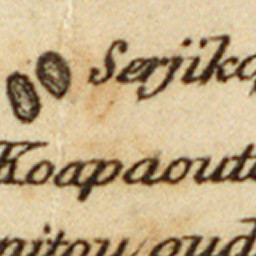 Serjiko
Koapaoute
nitou oud